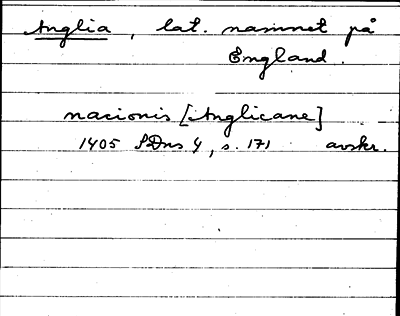 Anglia, lat. namnet på
England.
nacionis [Anglicane]
1405 SDns 4, s. 171 avskr.